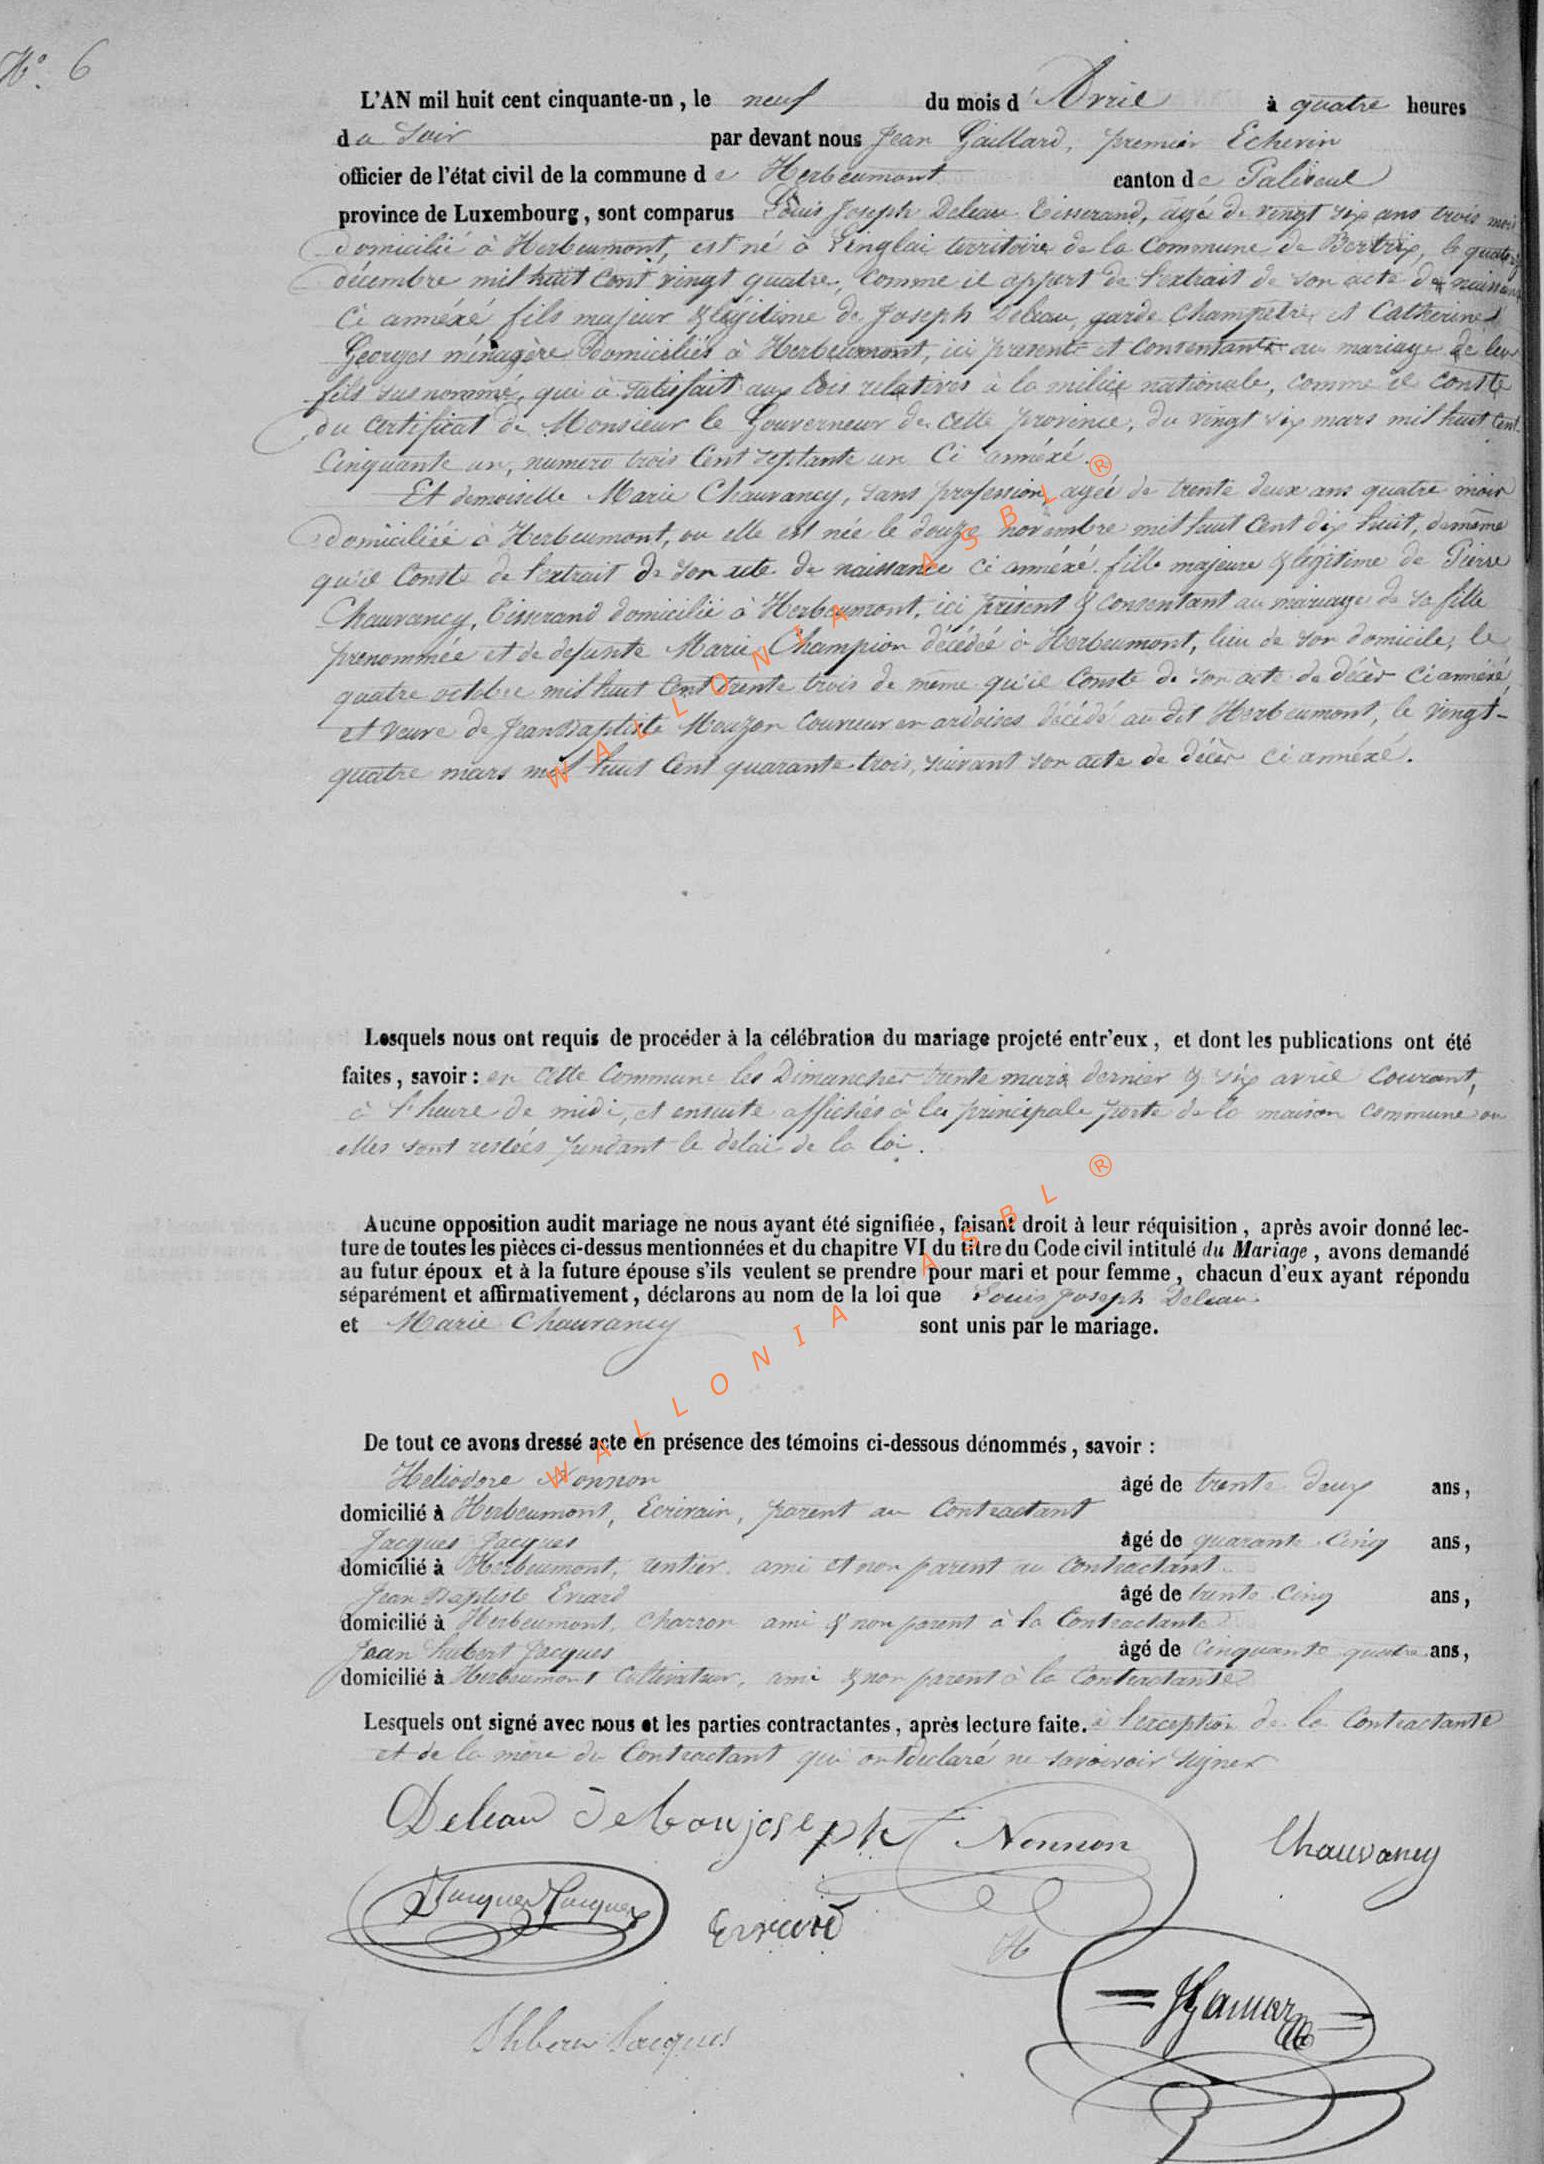 N° 6
L'AN mil huit cent cinquante-un, le neuf du mois d'Avril à quatre heures
du soir par devant nous Jean Gaillard, premier Echevin
officier de l'état civil de la commune de Herbeumont canton de Paliseul
province de Luxembourg, sont comparus Louis Joseph Deleau Tisserand, âgé de vingt six ans trois mois
domicilié à Herbeumont, est né à Linglai territoire de la Commune de Bertrix, le
décembre mil huit Cent vingt quatre, comme il appert de l'extrait de son acte de naissance
Ci annéxé fils majeur & légitime de Joseph Deleau, garde Champêtre et Catherine
Georges ménagère Domiciliés à Herbeumont, ici présents et consentants au mariage de leur
fils susnommé, qui à satisfait aux lois relatives à la milice nationale, comme il conste
du Certificat de Monsieur le Gouverneur de cette province, du vingt six mars mil huit Cent
Cinquante un, numero trois Cent septante un Ci annéxé.
Et demoiselle Marie Chauvancy, sans profession, agée de trente deux ans quatre mois
domiciliée à Herbeumont, ou elle est née le douze novembre mil huit Cent dix huit, de même
qu'il Conste de l'extrait de son acte de naissance Ci annéxé. fille majeure & légitime de Pierre
Chauvancy, Tisserand domicilié à Herbeumont, ici présent & consentant au mariage de sa fille
prenommée et de defunte Marie Champion décédée à Herbeumont, lieu de son domicile, le
quatre octobre mil huit Cent trente trois de même qu'il Conste de son acte de décès Ci annéxé
et veuve de Jean Baptiste Mouzon Couvreur en ardoises décédé au dit Herbeumont, le vingt-
quatre mars mil huit Cent quarante trois, suivant son acte de décès Ci annéxé.
Lesquels nous ont requis de procéder à la célébration du mariage projeté entr'eux, et dont les publications ont été
faites, savoir : en cette Commune les Dimanches trente mars dernier & six avril Courant,
à l'heure de midi, et ensuite affichés à la principale porte de la maison Commune ou
elles sont restées pendant le delai de la loi.
Aucune opposition audit mariage ne nous ayant été signifiée, faisant droit à leur réquisition, après avoir donné lec-
ture de toutes les pièces ci-dessus mentionnées et du chapitre VI du titre du Code civil intitulé du Mariage, avons demandé
au futur époux et à la future épouse s'ils veulent se prendre pour mari et pour femme, chacun d'eux ayant répondu
séparément et affirmativement, déclarons au nom de la loi que Louis Joseph Deleau
et Marie Chauvancy sont unis par le mariage.
De tout ce avons dressé acte en présence des témoins ci-dessous dénommés, savoir :
Heliodore Nonnon âgé de trente deux ans,
domicilié à Herbeumont, Ecrivain, parent au Contractant
Jacques Jacques âgé de quarante Cinq ans,
domicilié à Herbeumont, rentier, ami et non parent au Contractant
Jean Baptiste Evrard âgé de trente Cinq ans,
domicilié à Herbeumont, Charron ami & non parent à la Contractante
Jean hubert Jacques âgé de Cinquante quatre ans,
domicilié à Herbeumont Cultivateur, ami & non parent à la Contractante
Lesquels ont signé avec nous et les parties contractantes, après lecture faite. à l'exception de la Contractante
et de la mère du Contractant qui ont declaré ne savoivoir signer
Deleau Deleau joseph Nonnon Chauvancy
Jacques Jacques Evrard
Jacques
WALLONIA ASBL ®
WALLONIA ASBL ®